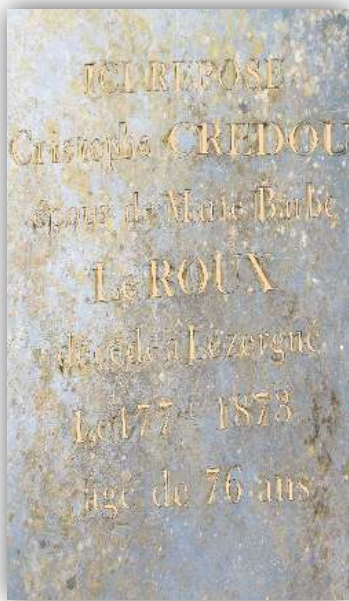 ICI REPOSE
Cristophe CREDOU
époux de Marie Barbe
Le ROUX
décédé à Lézergué
Le 17 7bre 1873
âgé de 76 ans